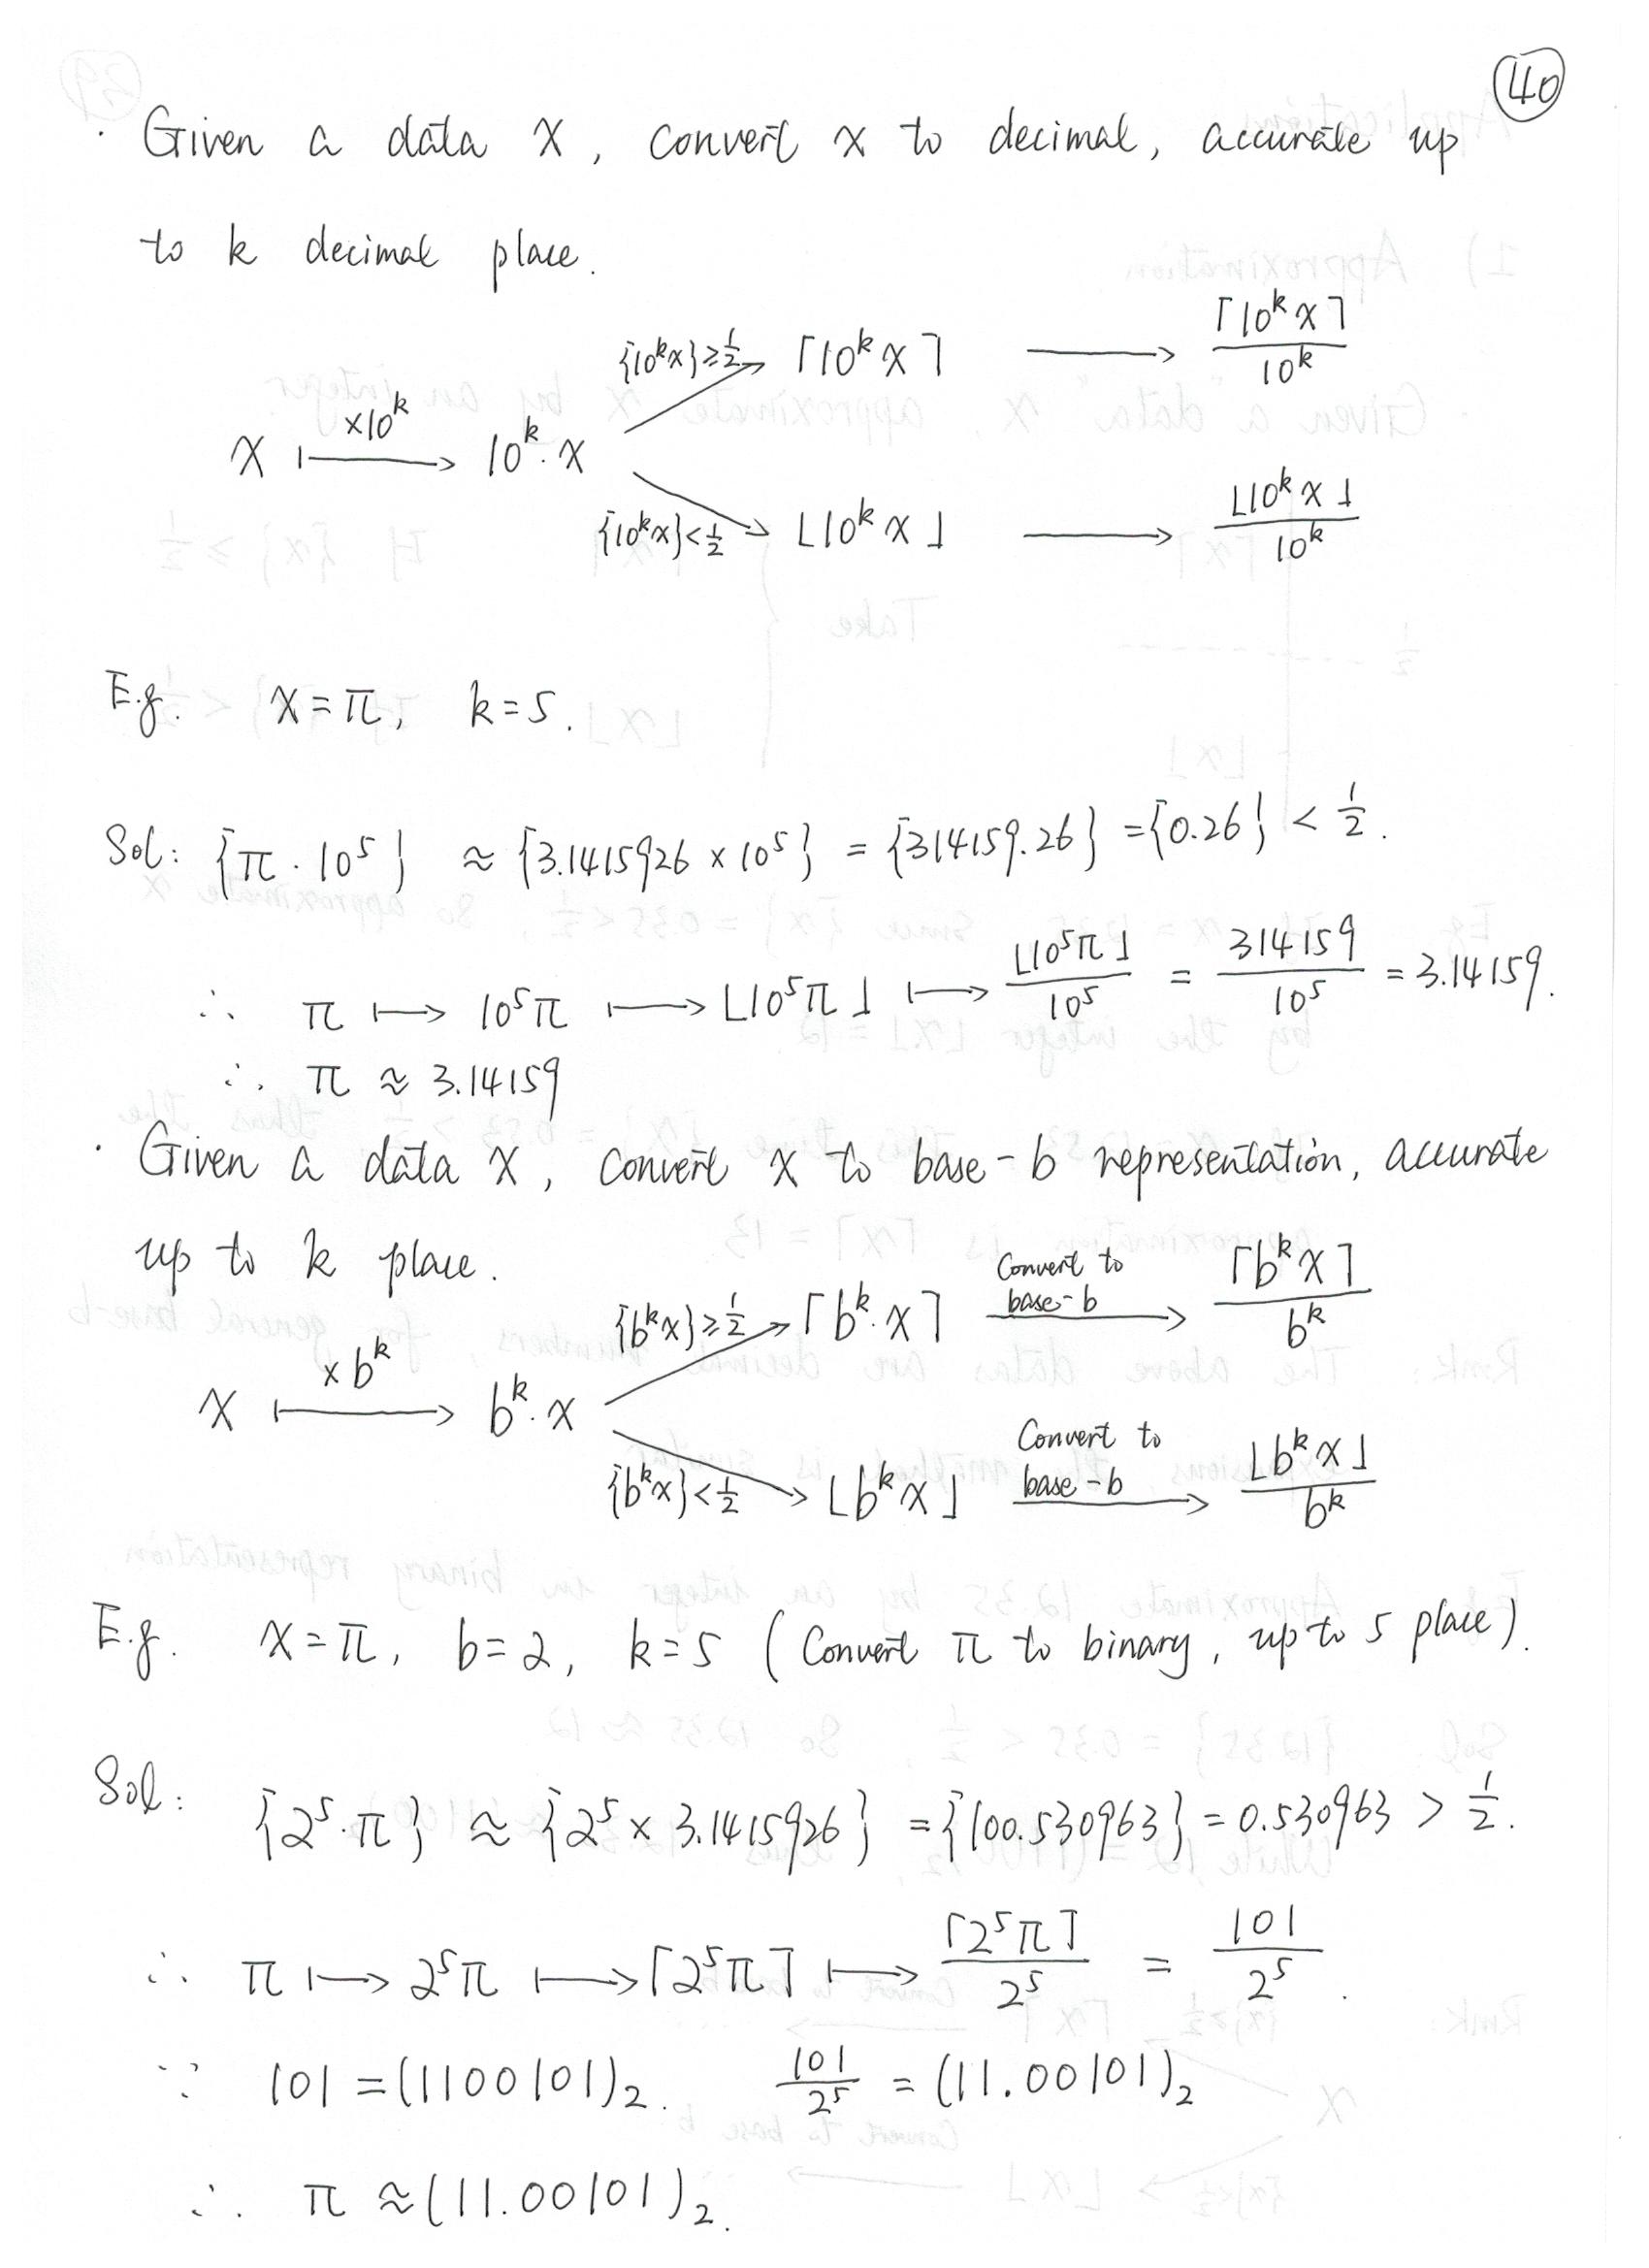 40
· Given a data x, convert x to decimal, accurate up
to k decimal place.
{10^k x} ≥ 1/2 ⌈10^k x⌉ → ⌈10^k x⌉ / 10^k
x ⟼ ×10^k 10^k · x
{10^k x} < 1/2 ⌊10^k x⌋ → ⌊10^k x⌋ / 10^k
E.g. x = π, k = 5.
Sol: {π · 10^5} ≈ {3.1415926 × 10^5} = {314159.26} = {0.26} < 1/2.
∴ π ⟼ 10^5 π ⟼ ⌊10^5 π⌋ ⟼ ⌊10^5 π⌋ / 10^5 = 314159 / 10^5 = 3.14159.
∴ π ≈ 3.14159
· Given a data x, convert x to base-b representation, accurate
up to k place.
{b^k x} ≥ 1/2 ⌈b^k · x⌉ Convert to base-b → ⌈b^k x⌉ / b^k
x ⟼ ×b^k b^k · x
{b^k x} < 1/2 ⌊b^k x⌋ Convert to base-b → ⌊b^k x⌋ / b^k
E.g. x = π, b = 2, k = 5 (Convert π to binary, up to 5 place).
Sol: {2^5 · π} ≈ {2^5 × 3.1415926} = {100.530963} = 0.530963 > 1/2.
∴ π ⟼ 2^5 π ⟼ ⌈2^5 π⌉ ⟼ ⌈2^5 π⌉ / 2^5 = 101 / 2^5.
∵ 101 = (1100101)_2. 101 / 2^5 = (11.00101)_2
∴ π ≈ (11.00101)_2.